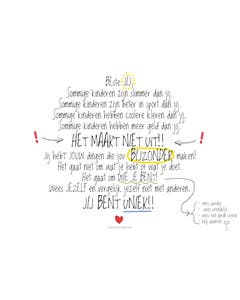 BEste JIJ,
Sommige kinderen zijn slimmer dan jij.
Sommige kinderen zijn beter in sport dan jij.
Sommige kinderen hebben coolere kleren dan jij.
Sommige kinderen hebben meer geld dan jij.
! HET MAAKT NIET UIT!! !
Jij hebt JOUW dingen die jou BIJZONDER maken!
Het gaat niet om wat je hebt of wat je doet.
Het gaat om DIE JE BENT!
Wees JEZELF en vergelijk jezelf niet met anderen.
JIJ BENT UNIEK!!
- wees aardig
- wees vriendelijk
- wees een goede vriend